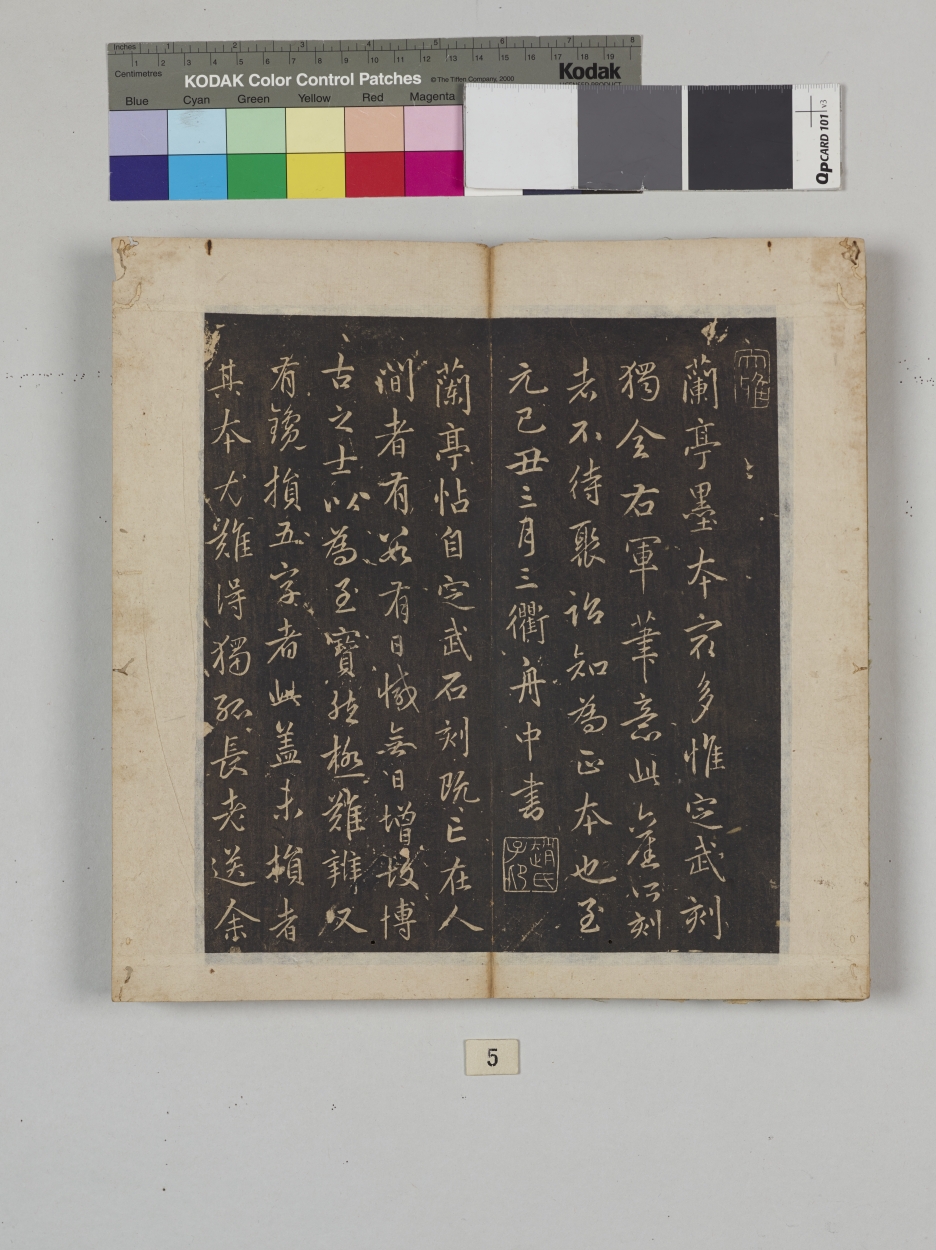 Inches 1 2 3 4 5 6 7 8
Centimetres 1 2 3 4 5 6 7 8 9 10 11 12 13 14 15 16 17 18 19
KODAK Color Control Patches © The Tiffen Company, 2000 Kodak
LICENSED PRODUCT
Blue Cyan Green Yellow Red Magenta
QPCARD 101 v3
大雅
蘭亭墨本冣多惟定武刻
獨全右軍筆意此舊所刻
者不待聚訟知為正本也至
元己丑三月三衢舟中書
趙氏子昂
蘭亭帖自定武石刻既亡在人
間者有數有日減無日增故博
古之士以為至寶然極難辨又
有鑱損五字者此盖未損者
其本尤難得獨孤長老送余
5